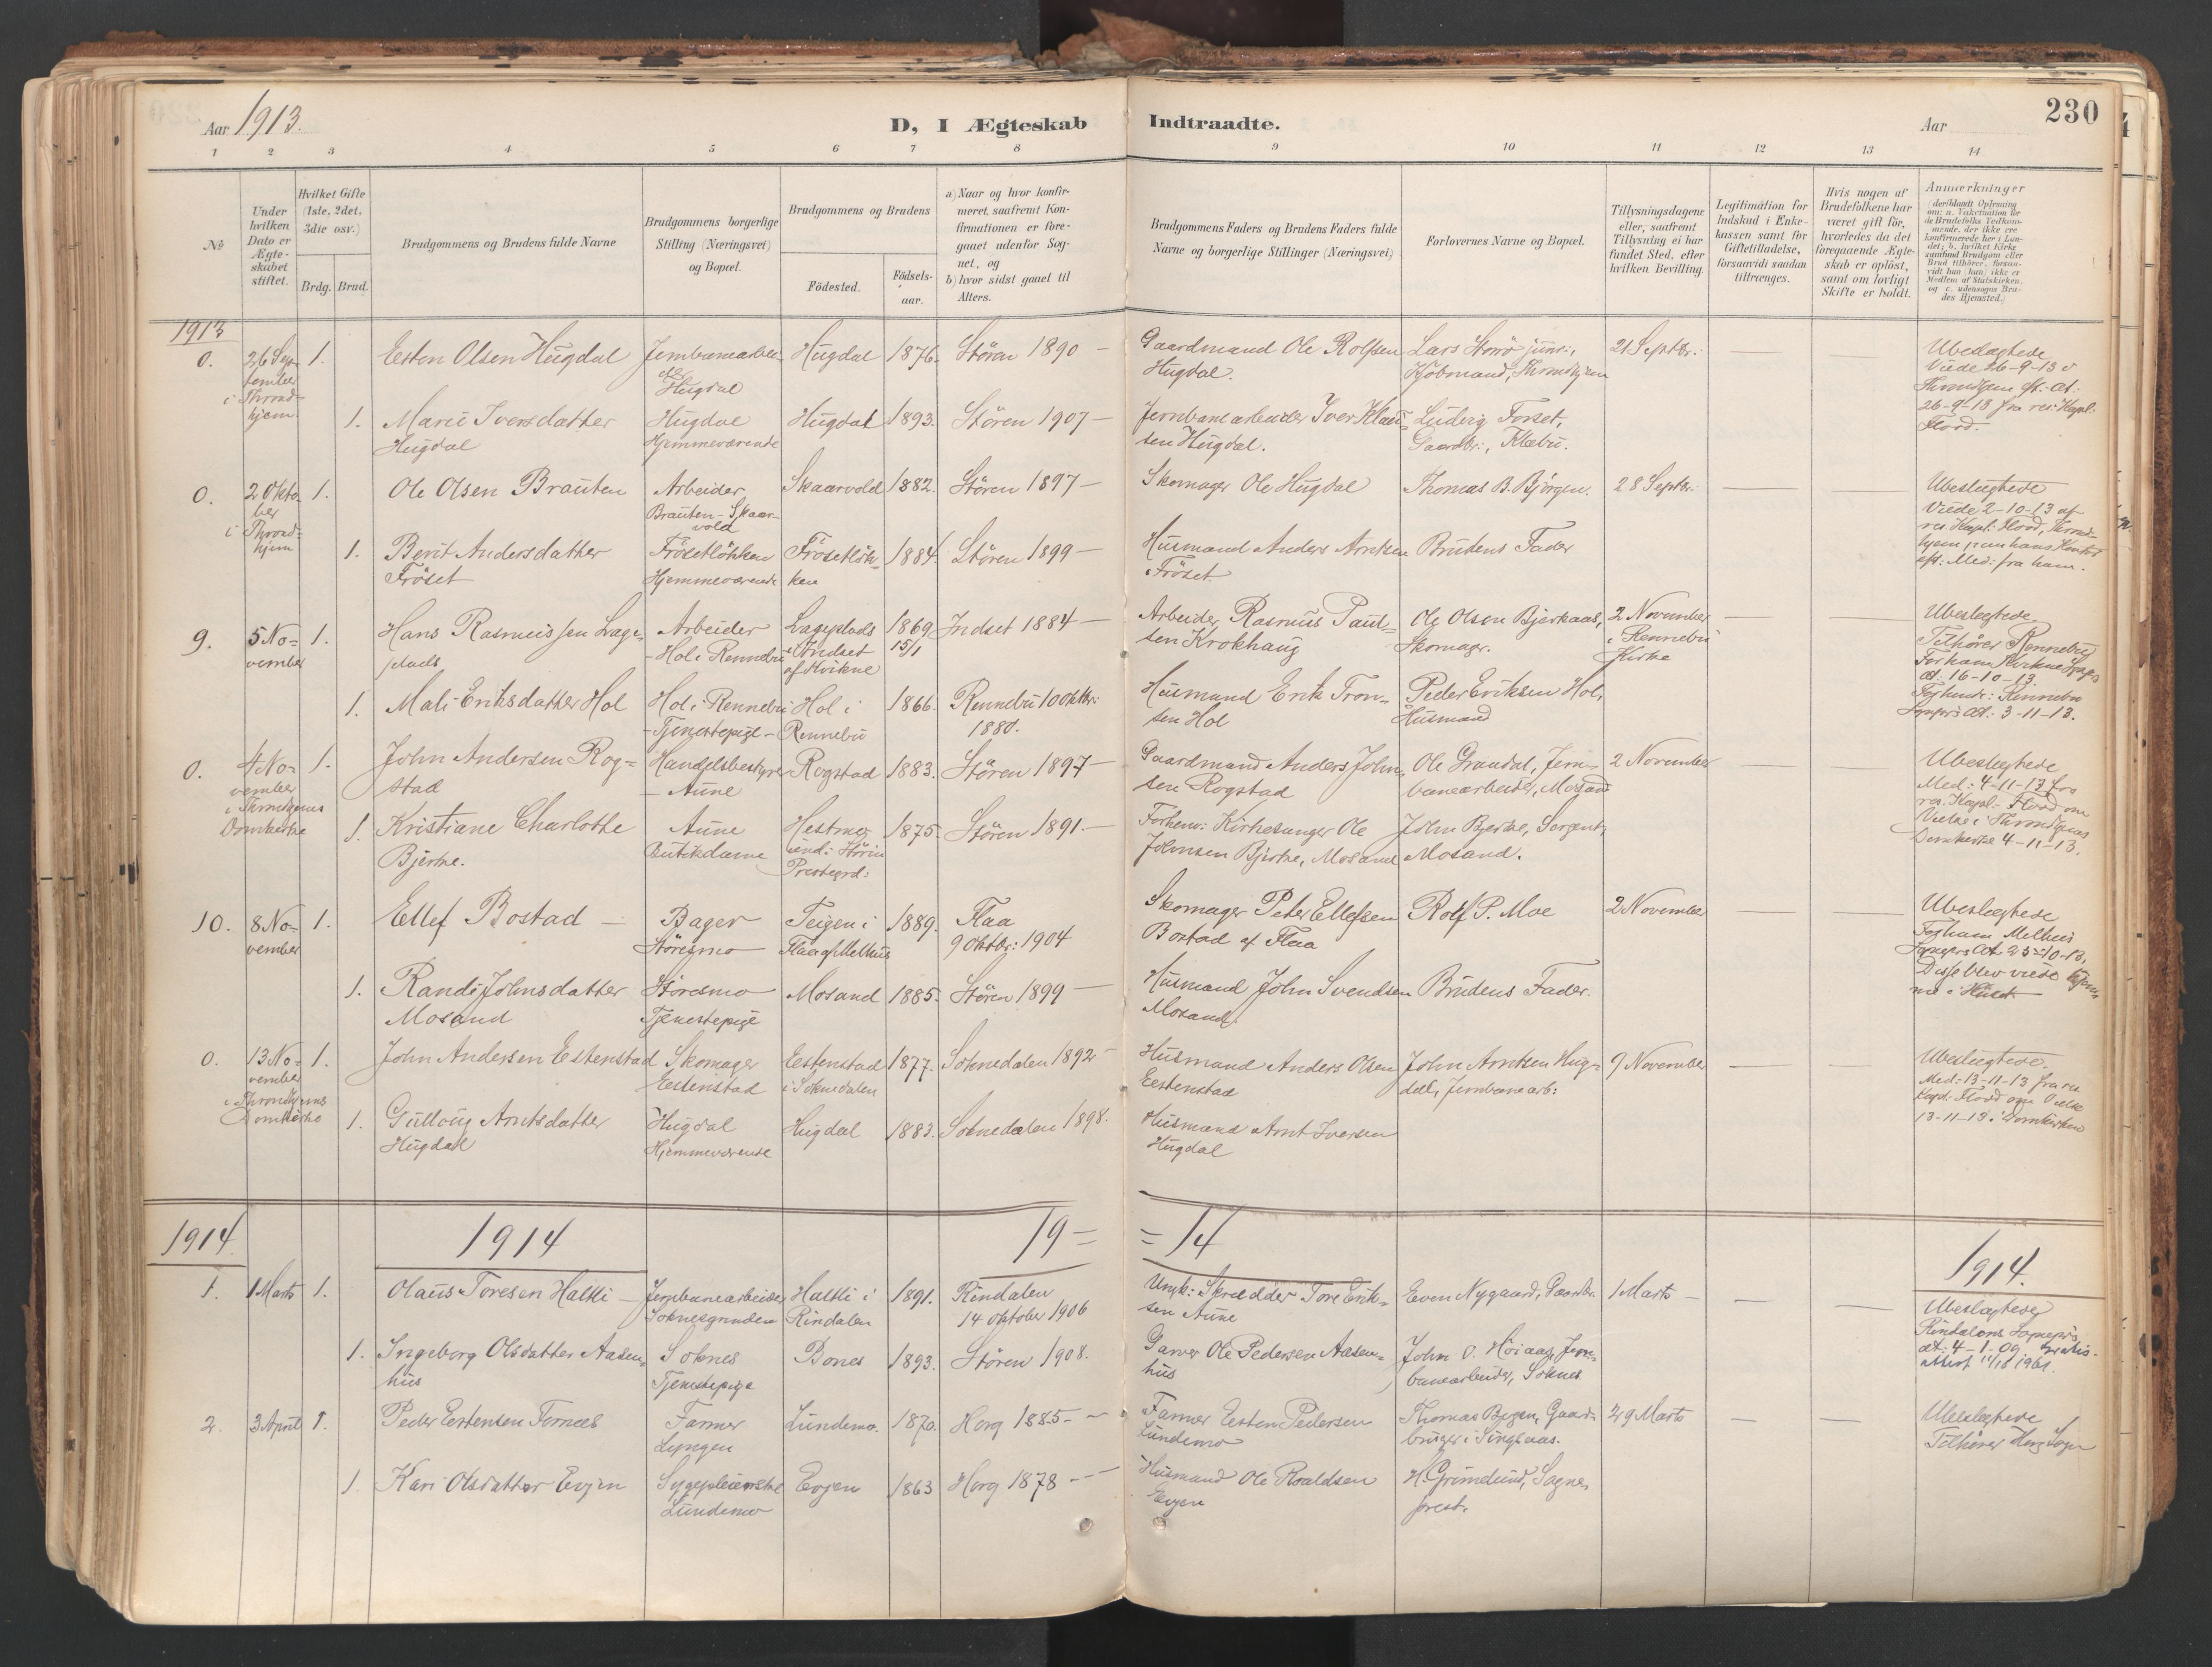 Aar 1913.
D, I Ægteskab
Indtraadte.
Aar
230
1 2 3 4 5 6 7 8 9 10 11 12 13 14
No
Under hvilken Dato er Ægteskabet stiftet.
Hvilket Gifte (1ste, 2det, 3die osv.)
Brdg. Brud.
Brudgommens og Brudens fulde Navne
Brudgommens borgerlige Stilling (Næringsvei) og Bopæl.
Brudgommens og Brudens
Födested.
Födsels-aar.
a) Naar og hvor konfirmeret, saafremt Konfirmationen er foregaaet udenfor Sognet, og
b) hvor sidst gaaet til Alters.
Brudgommens Faders og Brudens Faders fulde Navne og borgerlige Stillinger (Næringsvei)
Forlovernes Navne og Bopæl.
Tillysningsdagene eller, saafremt Tillysning ei har fundet Sted, efter hvilken Bevilling.
Legitimation for Indskud i Enkekassen samt for Giftetilladelse, forsaavidt saadan tiltrænges.
Hvis nogen af Brudefolkene har været gift för, hvorledes da det foregaaende Ægteskab er oplöst, samt om lovligt Skifte er holdt.
Anmærkninger
1913
0. 26 September i Throndhjem 1. Esten Olsen Hugdal Jernbanearbeider Hugdal Hugdal 1876. Stören 1890 – Gaardmand Ole Rolfsen Hugdal. Lars Storrö junr., Kjöbmand, Throndhjem 21 Septbr. Ubeslægtede Viede 26-9-13 Throndhjem eft. At. 26-9-13 fra res. Kapl. Flood.
1. Marie Iversdatter Hugdal Hugdal Hjemmeværende Hugdal 1893. Stören 1907 – Jernbanearbeider Iver Klausen Hugdal. Ludvig Forset, Gaardbr., Klæbu.
0. 2 Oktober i Throndhjem 1. Ole Olsen Brauten Arbeider Brauten - Skaarvold Skaarvold 1882. Stören 1897 – Skomager Ole Hugdal Thomas B. Bjørgen. 28 Septbr. Ubeslægtede Viede 2-10-13 af res. Kapl. Flood, Throndhjem, paa hans Kontor eft. Med. fra ham.
1. Berit Andersdatter Fröset Frösetlökken Hjemmeværende Frösetlökken 1884. Stören 1899 – Husmand Anders Arntsen Fröset Brudens Fader
9. 5 November 1. Hans Rasmussen Lageplads Arbeider - Hol i Rennebu Lageplads i Indset af Kvikne 1869 15/1 Indset 1884 – Arbeider Rasmus Paulsen Krokhaug Ole Olsen Bjerkaas, Skomager. 2 November i Rennebu Kirke Ubeslægtede Tilhører Rennebu For ham: Kvikne Sogns at. 16-10-13. For hende: Rennebu Sognpr. at. 3-11-13.
1. Mali Eriksdatter Hol Hol i Rennebu - Tjenestepige - Hol i Rennebu 1866. Rennebu 10 Oktbr. 1880. Husmand Erik Tronsen Hol Peder Eriksen Hol, Husmand
0. 4 November i Throndhjems Domkirke 1. John Andersen Rogstad Handelsbestyrer - Aune Rogstad 1883. Stören 1897 – Gaardmand Anders Johnsen Rogstad Ole Grandal, Jernbanearbeider, Mosand 2 November Ubeslægtede Med. 4-11-13 fra res. Kapl. Flood om Vielse i Throndhjems Domkirke 4-11-13.
1. Kristiane Charlothe Bjerke. Aune Butikdame 1875. Stören 1891. – Forhenv. Kirkesanger Ole Johnsen Bjerke, Mosand John Bjerke, Sergent, Mosand.
10. 8 November 1. Ellef Bostad – Bager Störesmo Teigen i Flaa af Melhus 1889. Flaa 9 Oktbr. 1904 Skomager Peter Ellefsen Bostad af Flaa Rolf P. Moe 2 November Ubeslægtede For ham Melhus Sognpr. At. 25-10-13. Disse blev viede hjemme i Huset
1. Randi Johnsdatter Mosand Störesmo Tjenestepige Mosand 1885. Stören 1899 – Husmand John Svendsen Mosand. Brudens Fader.
0. 13 November i Throndhjems Domkirke 1. John Andersen Estenstad Skomager Estenstad Eestenstad i Soknedalen 1877. Soknedalen 1892 – Husmand Anders Olsen Eestenstad John Arntsen Hugdal, Jernbanearb. 9 November Ubeslægtede. Med. 13-11-13 fra res. Kapl. Flood om Vielse 13-11-13 i Domkirken
1. Gullaug Arntsdatter Hugdal Hugdal Hjemmeværende Hugdal 1883. Soknedalen 1898. Husmand Arnt Iversen Hugdal
1914 1914 19= =14 1914.
1. 1 Marts 1. Olaus Toresen Haltli – Jernbanearbeider Soknesgrinden Haltli i Rindalen 1891. Rindalen 14 Oktober 1906 Umk. Skrædder Tore Eriksen Aune Even Nygaard, Gaardbr. 1 Marts – Ubeslægtede Rindalens Sognepr. at. 4-1-09
1. Ingeborg Olsdatter Aasenhus Soknes Tjenestepige Bones 1893. Stören 1908. Garver Ole Pedersen Aasenhus John O. Høiaas, Jernbanearbeider, Soknes
2. 3 April 1. Peder Eestensen Farmer Lyngen Lundemo. 1870. Horg 1885 – Farmer Eesten Pedersen Lundemo Thomas Bjørgen, Gaardbruger i Singsaas. 29 Marts Ubeslægtede Tilhører Horg Sogn
1. Kari Olsdatter Evjen Sygepleierske Lundemo Evjen 1863 Horg 1878 – Husmand Ole Roaldsen Evjen H. Grimelund, Sogneprest.